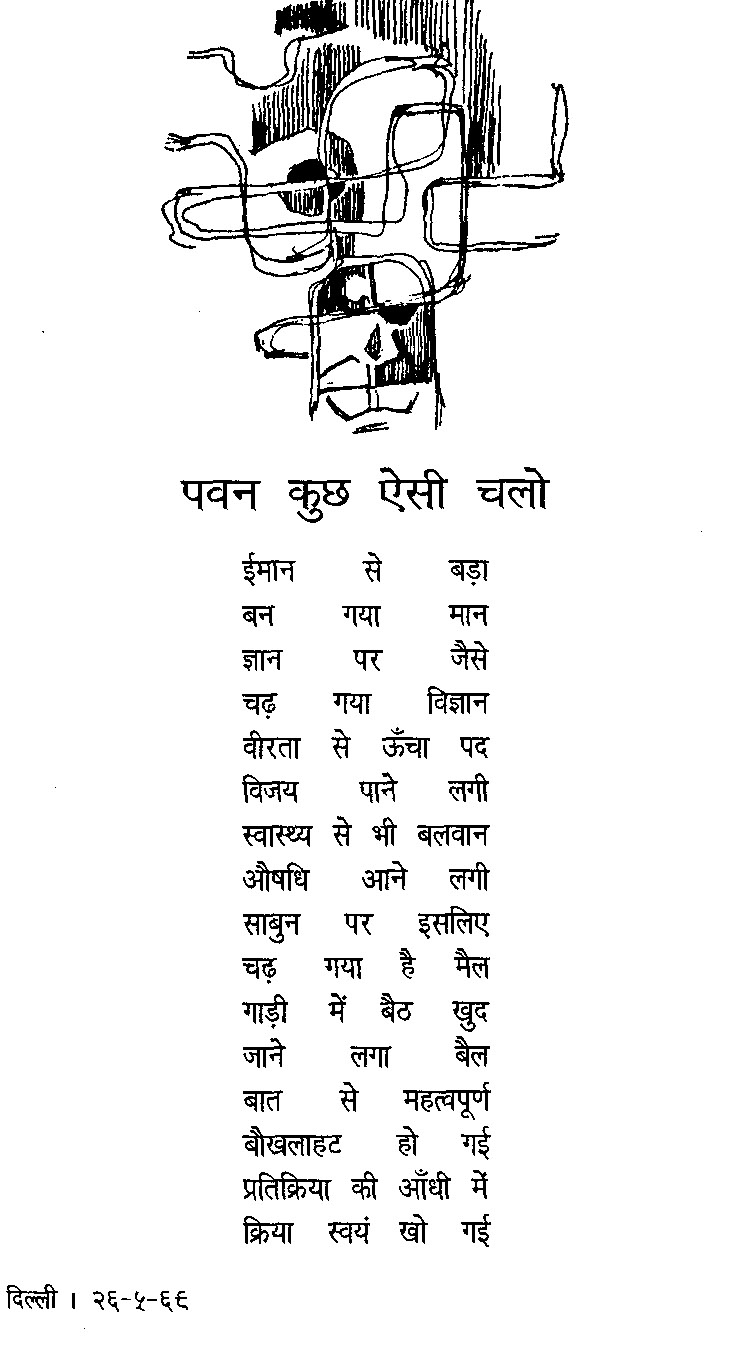 पवन कुछ ऐसी चलो
ईमान से बड़ा
बन गया मान
ज्ञान पर जैसे
चढ़ गया विज्ञान
वीरता से ऊँचा पद
विजय पाने लगी
स्वास्थ्य से भी बलवान
औषधि आने लगी
साबुन पर इसलिए
चढ़ गया है मैल
गाड़ी में बैठ खुद
जाने लगा बैल
बात से महत्वपूर्ण
बौखलाहट हो गई
प्रतिक्रिया की आँधी में
क्रिया स्वयं खो गई
दिल्ली । २६-५-६९